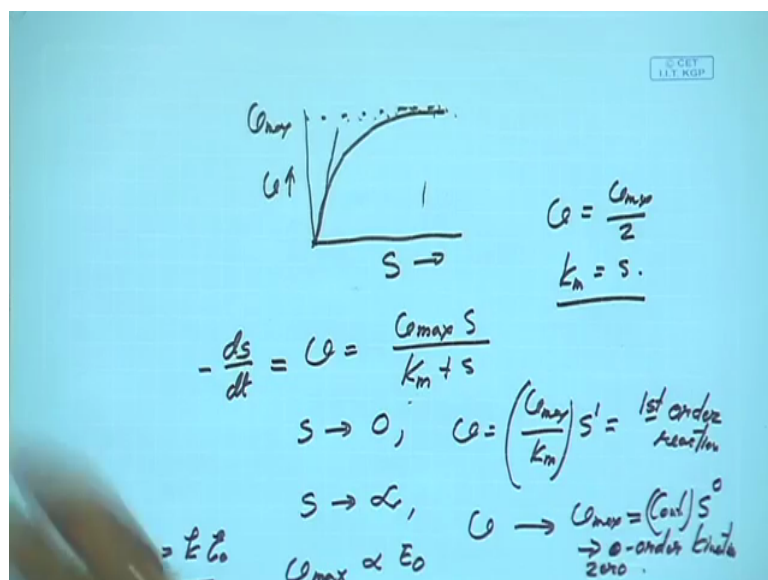 © CET
I.I.T. KGP
υmax
υ↑
S →
υ = υmax / 2
km = s.
- ds/dt = υ = υmax s / km + s
s → 0, υ = (υmax / km) s¹ = 1st order reaction
s → ∝, υ → υmax = (Const) s⁰
→ 0-order kinetics
zero.
= k E₀
υmax ∝ E₀